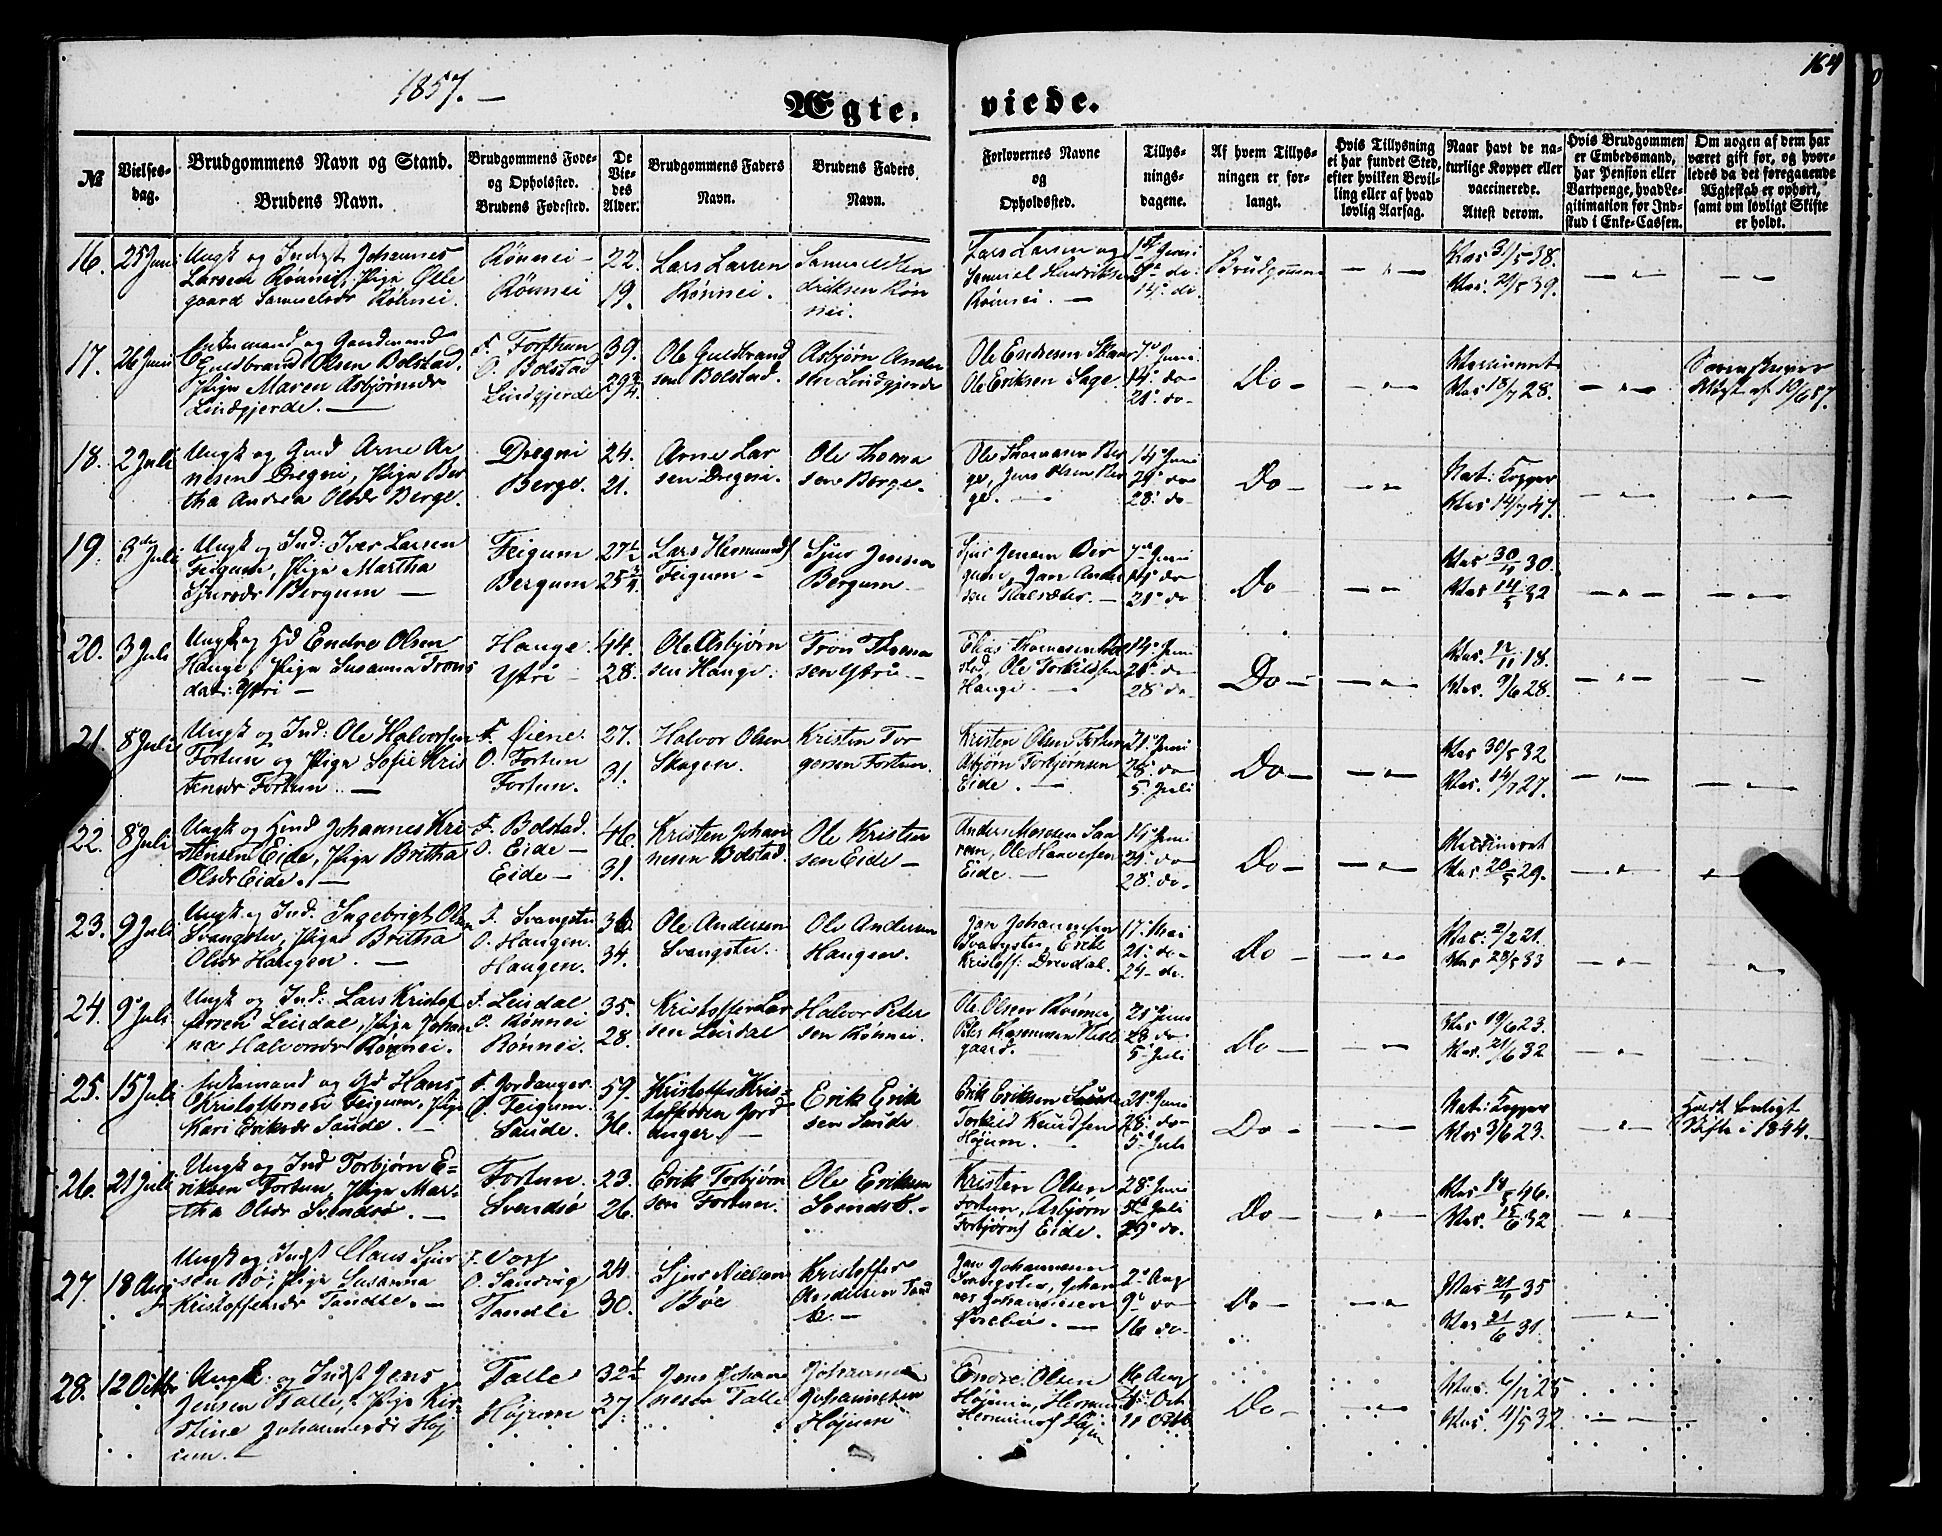 1857. —
164
Ægte. viede.
№
Vielses-
dag.
Brudgommens Navn og Stand.
Brudens Navn.
Brudgommens Føde-
og Opholsted.
Brudens Fødested.
De
Vie-
des
Alder.
Brudgommens Faders
Navn.
Brudens Faders
Navn.
Forlovernes Navne
og
Opholdssted.
Tillys-
nings-
dagene.
Af hvem Tillys-
ningen er for-
langt.
Hvis Tillysning
ei har fundet Sted,
efter hvilken Bevil-
ling eller af hvad
lovlig Aarsag.
Naar havt de na-
turlige Kopper eller
vaccinerede.
Attest derom.
Hvis Brudgommen
er Embedsmand,
har Pension eller
Vartpenge, hvad Le-
gitimation for Ind-
skud i Enke-Cassen.
Om nogen af dem har
været gift før, og hvor-
ledes da det foregaaende
Ægteskab er ophørt,
samt om lovligt Skifte
er holdt.
16. 25 Juni
Ungk og Indgst Johannes
Larsen Rønnei, Pige Olle
gaard Samuelsdr Rønnei.
Rønnei —
Rønnei
22.
19.
Lars Larsen
Rønnei.
Samuel Hen
driksen Røn
nei.
Lars Larsen og
Samuel Hendriksen
Rønnei. —
1st Juni
do.
14. do.
Brudgommen
Vac. 31/5 38.
Vac. 39.
17. 26 Juni
Enkemand og Gaardmand
Guldbrand Olsen Bolstad.
Pige Maren Asbjørnsdr
Lindgjerde. —
F. Forthun
O. Bolstad
Lindgjerde
39.
29 3/4.
Ole Guldbrand
sen Bolstad.
Asbjørn Ander
sen Lindgjerde
Ole Endresen Skaar
Ole Eriksen Sage.
7. Juni
14. do
21. do
Do —
Vaccineret
Vac 18/7 28.
Sorenskriver
Attest af 10/6 57.
18. 2 Juli
Ungk og Gmd Arne Ar
nesen Dregni, Pige Ber
tha Andrea Olsdr Berge.
Dregni
Berge.
24.
21.
Arne Lar
sen Dregni.
Ole Thoma
sen Berge.
Ole Thomasen Ber
ge, Jens Olsen Ber
ge. —
14 Juni
do
28. do
Do —
Nat: Kopper
Vac 14/7 47.
19. 3de Juli
Ungk og Ind: Iver Larsen
Feigum, Pige Martha
Sjursdr Bergum —
Feigum
Bergum
27 1/2
25 3/4
Lars Hermunds
Feigum —
Sjur Jensen
Bergum.
Sjur Jensen Ber
gum, Jan Ander
sen —
7. Juni
14. do
21. do
Do —
Vac 30/4 30.
Vac 14/5 32
20. 3 Juli
Ungk og Gd Endre Olsen
Hauge, Pige Susanna Trons
dat: Ytri —
Hauge
Ytri —
44.
28.
Ole Asbjørn
sen Hauge.
Tron Thoma
sen Ytri —
Elias Thomasen
stad, Ole Torkildsen
Hauge.
14. Juni
21. do
28. do
Do —
Vac. 12/11 18.
Vac. 9/6 28.
21. 8 Juli
Ungk og Ind: Ole Halvorsen
Fortun og Pige Sofie Kris
tensdr Fortun. —
F. Øiene.
O. Fortun
Fortun.
27.
31.
Halvor Olsen
Skagen.
Kristen Tor
gersen Fortun.
Kristen Olsen Fortun
Asbjørn Torbjørnsen
Eide. —
21. Juni
28. do
5. Juli
Do —
Vac 30/5 32
Vac. 14/7 27.
22. 8 Juli
Ungk og Gmd Johannes Kri
stensen Eide, Pige Britha
Olsdr Eide. —
F. Bolstad.
O. Eide —
Eide —
46.
31.
Kristen Johan
nesen Bolstad.
Ole Kristen
sen Eide —
Eide. —
14. Juni
21. do
28. do.
Do —
Vaccineret
Vac. 20/5 29.
23. 9 Juli
Ungk og Ind: Ingebrigt Olsen
Svangstu, Pige Britha
Olsdr Haugen. —
F. Svangstu
O. Haugen.
Haugen.
36.
34.
Ole Andersen
Svangstu.
Ole Andersen
Haugen.
Jan Johannesen
Svangstu, Erik
Kristoff: Drevdal.
17. Mai
21. do
24. do.
Do —
Vac. 2/2 21.
Vac 28/5 33
24. 9. Juli
Ungk og Ind: Lars Kristof
fersen Leirdal, Pige Johan
na Halvorsdr Rønnei.
F. Leirdal
O. Rønnei
Rønnei.
35.
28.
Kristoffer Lar
sen Leirdal
Halvor Peter
sen Rønnei.
Ole Olsen Rønnei
gaard. —
21. Juni
28. do
5. Juli
Do —
Vac 19/6 23.
Vac. 21/6 32
25. 15 Juli
Enkemand og Gd Hans
Kristoffersen Feigum, Pige
Kari Eriksdr Saude. —
F. Jordanger.
O. Feigum.
Saude.
59.
36.
Kristoffer Kris-
toffersen Jord
anger. —
Erik Erik
sen Saude
Erik Eriksen Saude
Torkild Knudsen
Højum. —
21. Juni
28. do
5. Juli
Do —
Nat: Kopper
Vac 3/6 23.
Holdt lovligt
Skifte i 1844.
26. 21 Juli
Ungk og Ind Torbjørn E=
riksen Fortun, Pige Mar-
tha Olsdr Svendsø. —
Fortun.
Svendsø
23.
26.
Erik Torbjørn
sen Fortun.
Ole Eriksen
Svendsø. —
Kristen Olsen
Fortun, Asbjørn
Torbjørns Eide.
28. Juni
5. Juli
do.
Do —
Vac 14/5 46.
Vac. 15/6 32
27. 18 Aug
Ungk og Indst Claus Sjur
sen Bø, Pige Susanna
Kristoffersdr Tandle. —
F. Vors
O. Sandvig
Tandle
24.
30.
Sjur Nielsen
Bøe
Kristoffer
Tand
le. —
Jan Johannesen
Svangstu, Johan
nes Johannesen
2. Aug
9. do
16 do
Do —
Vac 21/4 35
Vac 21/6 31.
28. 12 Octbr
Ungk: og Indst Jens
Jensen Talle, Pige Kir-
stine Johannesdr Høj
um. —
Talle
Højum
32 1/2
27.
Jens Johan
nesen Talle
Johannes
Johannesen
Højum
Endre Olsen
Højum, Hermun
Hermuns Højum
Aug
4. Oct
11 Octb
Do —
Vac. 25
Vac. 4/5 32.